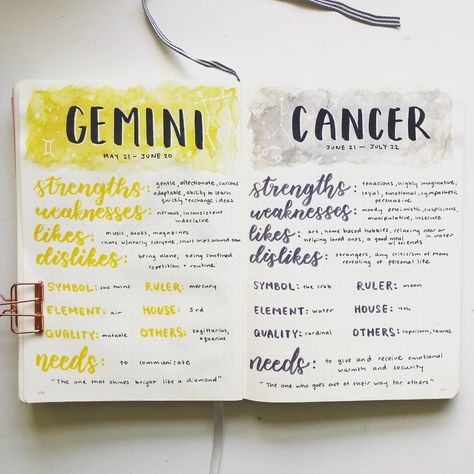 GEMINI
MAY 21 - JUNE 20
strengths: gentle, affectionate, curious
adaptable, ability to learn
quickly & exchange ideas
weaknesses: nervous, inconsistent
indecisive
likes: music, books, magazines
chats w/ nearly everyone, short trips around town
dislikes: being alone, being confined
repetition + routine
SYMBOL: the twins RULER: mercury
ELEMENT: air HOUSE: 3rd
QUALITY: mutable OTHERS: sagittarius,
aquarius
needs: to communicate
"The one that shines bright like a diamond"
CANCER
JUNE 21 - JULY 22
strengths: tenacious, highly imaginative,
loyal, emotional, sympathetic
persuasive
weaknesses: moody, pessimistic, suspicious
manipulative, insecure
likes: art, home based hobbies, relaxing near or
helping loved ones, a good meal in water
w/ friends
dislikes: strangers, any criticism of Mom
revealing of personal life
SYMBOL: the crab RULER: moon
ELEMENT: water HOUSE: 4th
QUALITY: cardinal OTHERS: capricorn, taurus
needs: to give and receive emotional
warmth and security
"The one who goes out of their way for others"